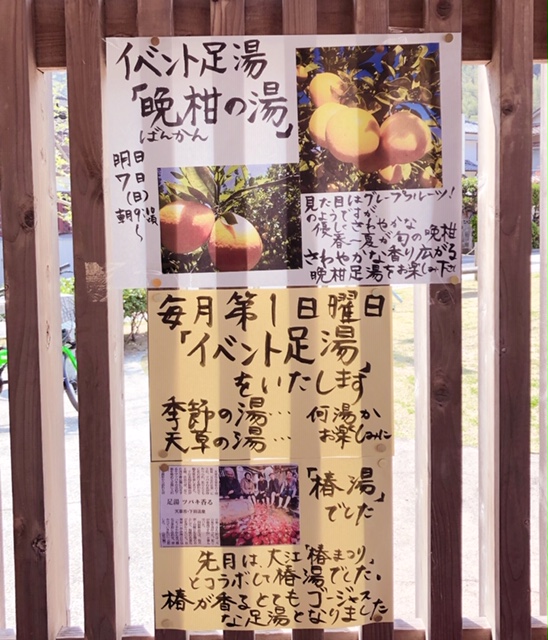 イベント足湯
「晩柑の湯」
ばんかん
明日
7日
(日)
朝9:00頃
〜
見た目はグレープフルーツ!
のようですが、
優しくさわやかな
春〜夏が旬の晩柑
さわやかな香り広がる
晩柑足湯をお楽しみ下さい
毎月第1日曜日
「イベント足湯」
をいたします
季節の湯… 何湯か
天草の湯… お楽しみに
足湯 ツバキ香る
天草市・下田温泉
「椿湯」
でした
先月は、大江「椿まつり」
とコラボして椿湯でした。
椿が香るとてもゴージャス
な足湯となりました